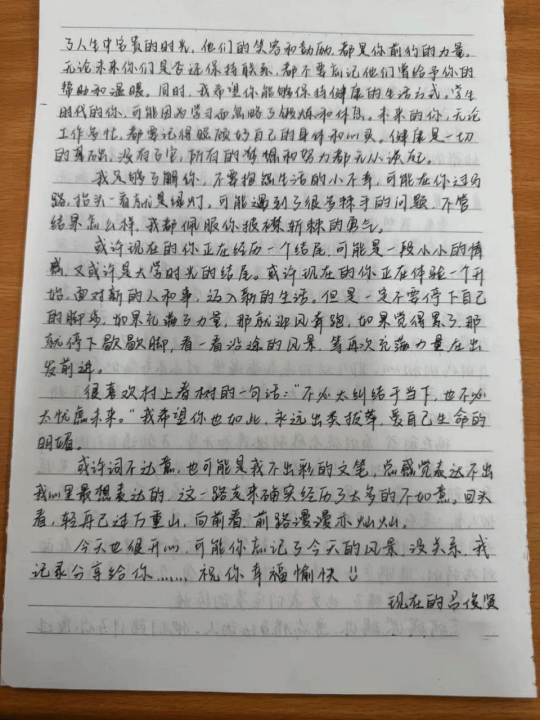 了人生中宝贵的时光，他们的笑容和鼓励，都是你前行的力量。
无论未来你们是否还保持联系，都不要忘记他们曾给予你的
帮助和温暖。同时，我希望你能够保持健康的生活方式，学生
时代的你，可能因为学习而忽略了锻炼和休息。未来的你，无论
工作多忙，都要记得照顾好自己的身体和心灵。健康是一切
的基础，没有了它，所有的梦想和努力都无从谈起。
我足够了解你，不要担心生活的小不幸，可能在你过马
路，抬头一看就是绿灯，可能遇到了很多棘手的问题，不管
结果怎么样，我都佩服你披荆斩棘的勇气。
或许现在的你正在经历一个结尾，可能是一段小小的情
感，又或许是大学时光的结尾。或许现在的你正在体验一个开
始，面对新的人和事，迈入新的生活。但是一定不要停下自己
的脚步，如果充满了力量，那就迎风奔跑，如果觉得累了，那
就停下歇歇脚，看一看沿途的风景，等再次充满力量在出
发前进。
很喜欢村上春树的一句话："不必太纠结于当下，也不必
太忧虑未来。"我希望你也如此，永远出类拔萃，爱自己生命的
明媚。
或许词不达意，也可能是我不出彩的文笔，总感觉表达不出
我心里最想表达的，这一路走来确实经历了太多的不如意。回头
看，轻舟已过万重山，向前看，前路漫漫亦灿灿。
今天也很开心，可能你忘记了今天的风景，没关系，我
记录分享给你……，祝你幸福愉快!!
现在的吕俊贤